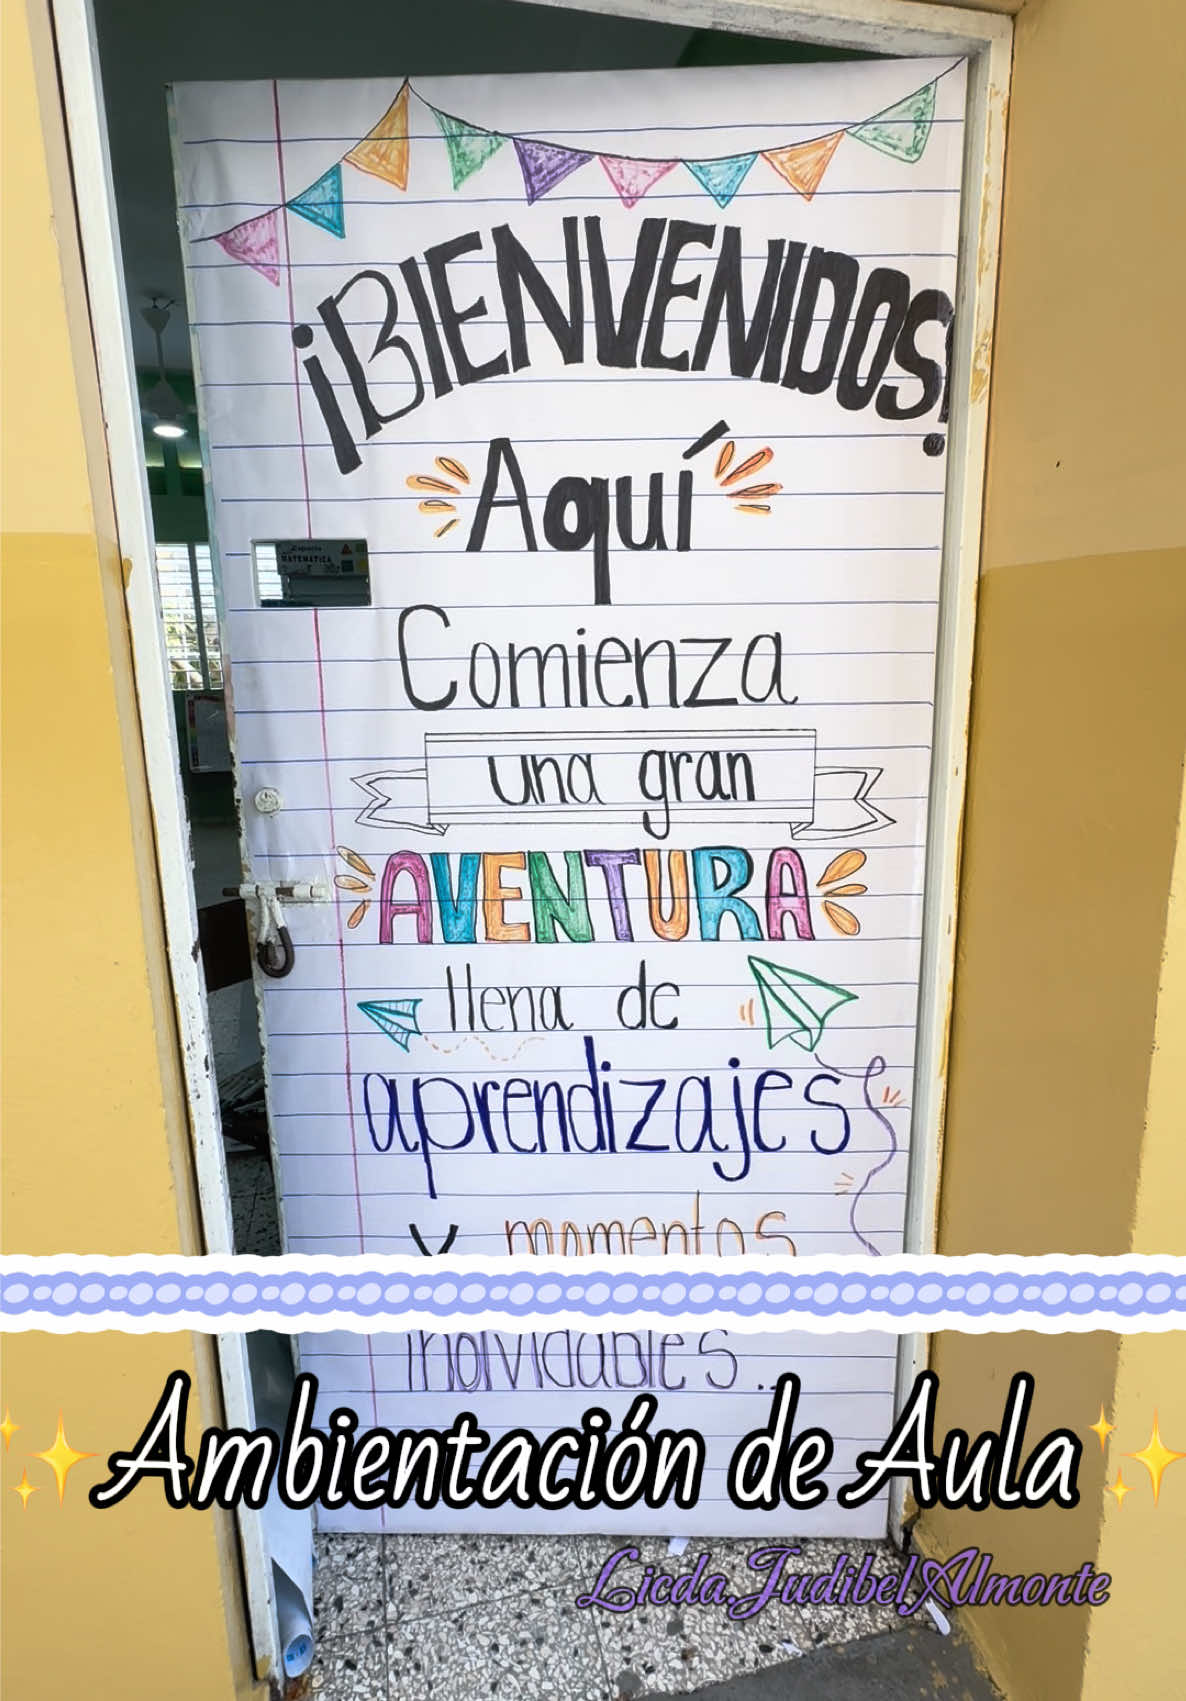 ¡BIENVENIDOS!
Aquí
Comienza
una gran
AVENTURA
llena de
aprendizajes
y momentos
inolvidables...
Espacio
MATEMÁTICA
Ambientación de Aula
Licda.Judibel Almonte